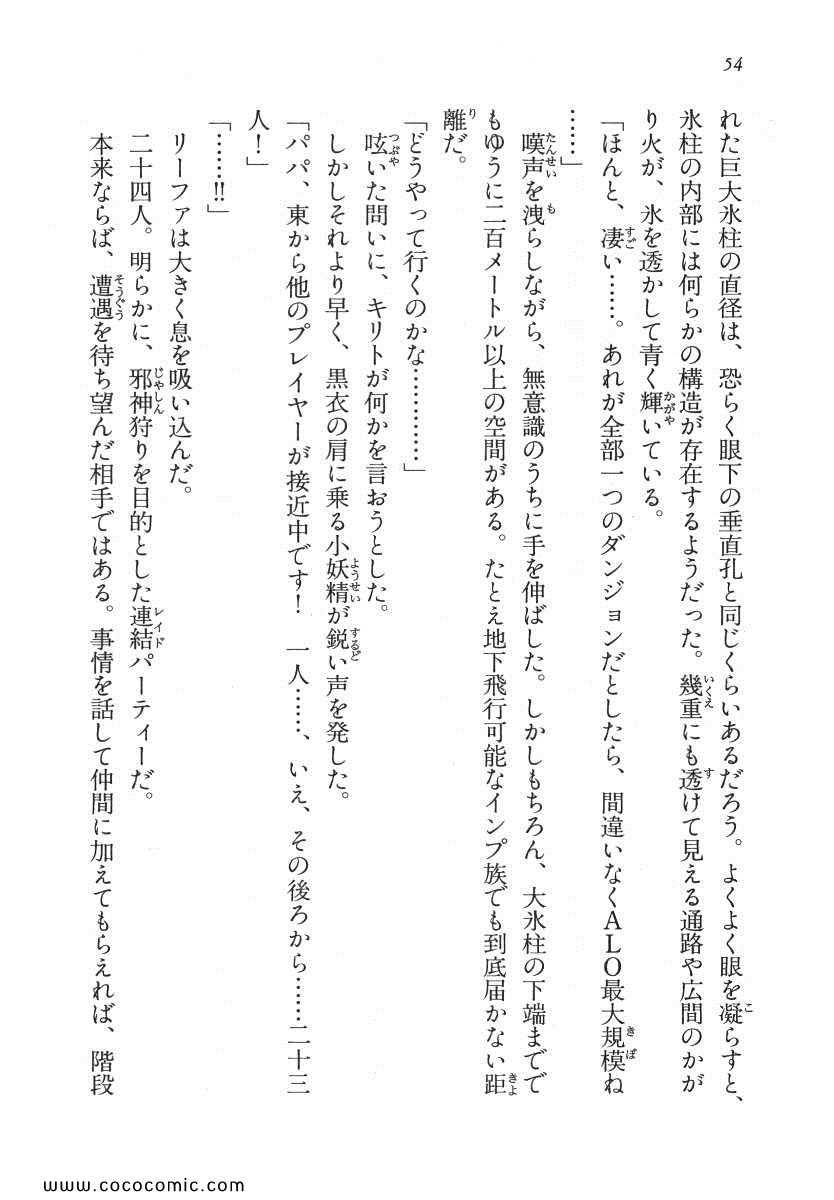 54
れた巨大氷柱の直径は、恐らく眼下の垂直孔と同じくらいあるだろう。よくよく眼を凝らすと、
氷柱の内部には何らかの構造が存在するようだった。幾重にも透けて見える通路や広間のかが
り火が、氷を透かして青く輝いている。
「ほんと、凄い……。あれが全部一つのダンジョンだとしたら、間違いなくＡＬＯ最大規模ね
……」
嘆声を洩らしながら、無意識のうちに手を伸ばした。しかしもちろん、大氷柱の下端までで
もゆうに二百メートル以上の空間がある。たとえ地下飛行可能なインプ族でも到底届かない距
離だ。
「どうやって行くのかな…………」
呟いた問いに、キリトが何かを言おうとした。
しかしそれより早く、黒衣の肩に乗る小妖精が鋭い声を発した。
「パパ、東から他のプレイヤーが接近中です！　一人……、いえ、その後ろから……二十三
人！」
「……!!」
リーファは大きく息を吸い込んだ。
二十四人。明らかに、邪神狩りを目的とした連結パーティーだ。
本来ならば、遭遇を待ち望んだ相手ではある。事情を話して仲間に加えてもらえれば、階段
www.cococomic.com